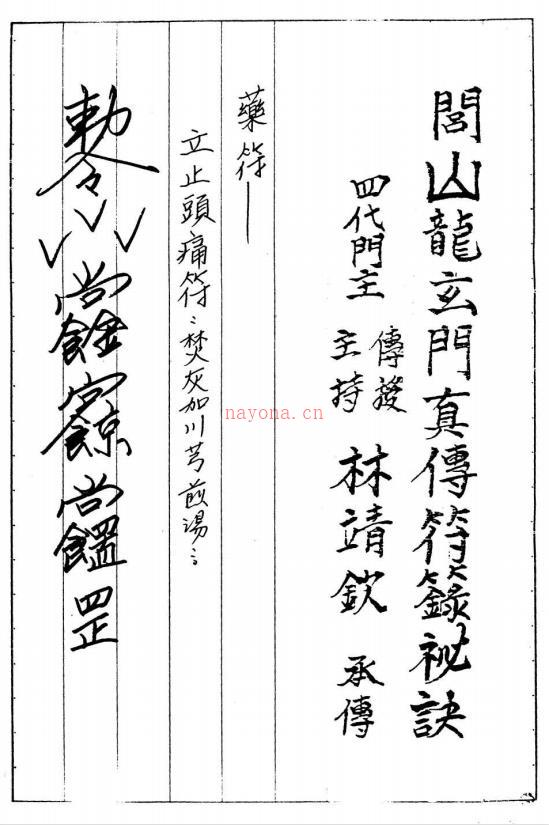 閭山龍玄門真傳符籙祕訣
四代門主
傳授
主持
林靖欽 承傳
藥符——
立止頭痛符:焚灰加川芎煎湯:
敕令
罡
nayona.cn